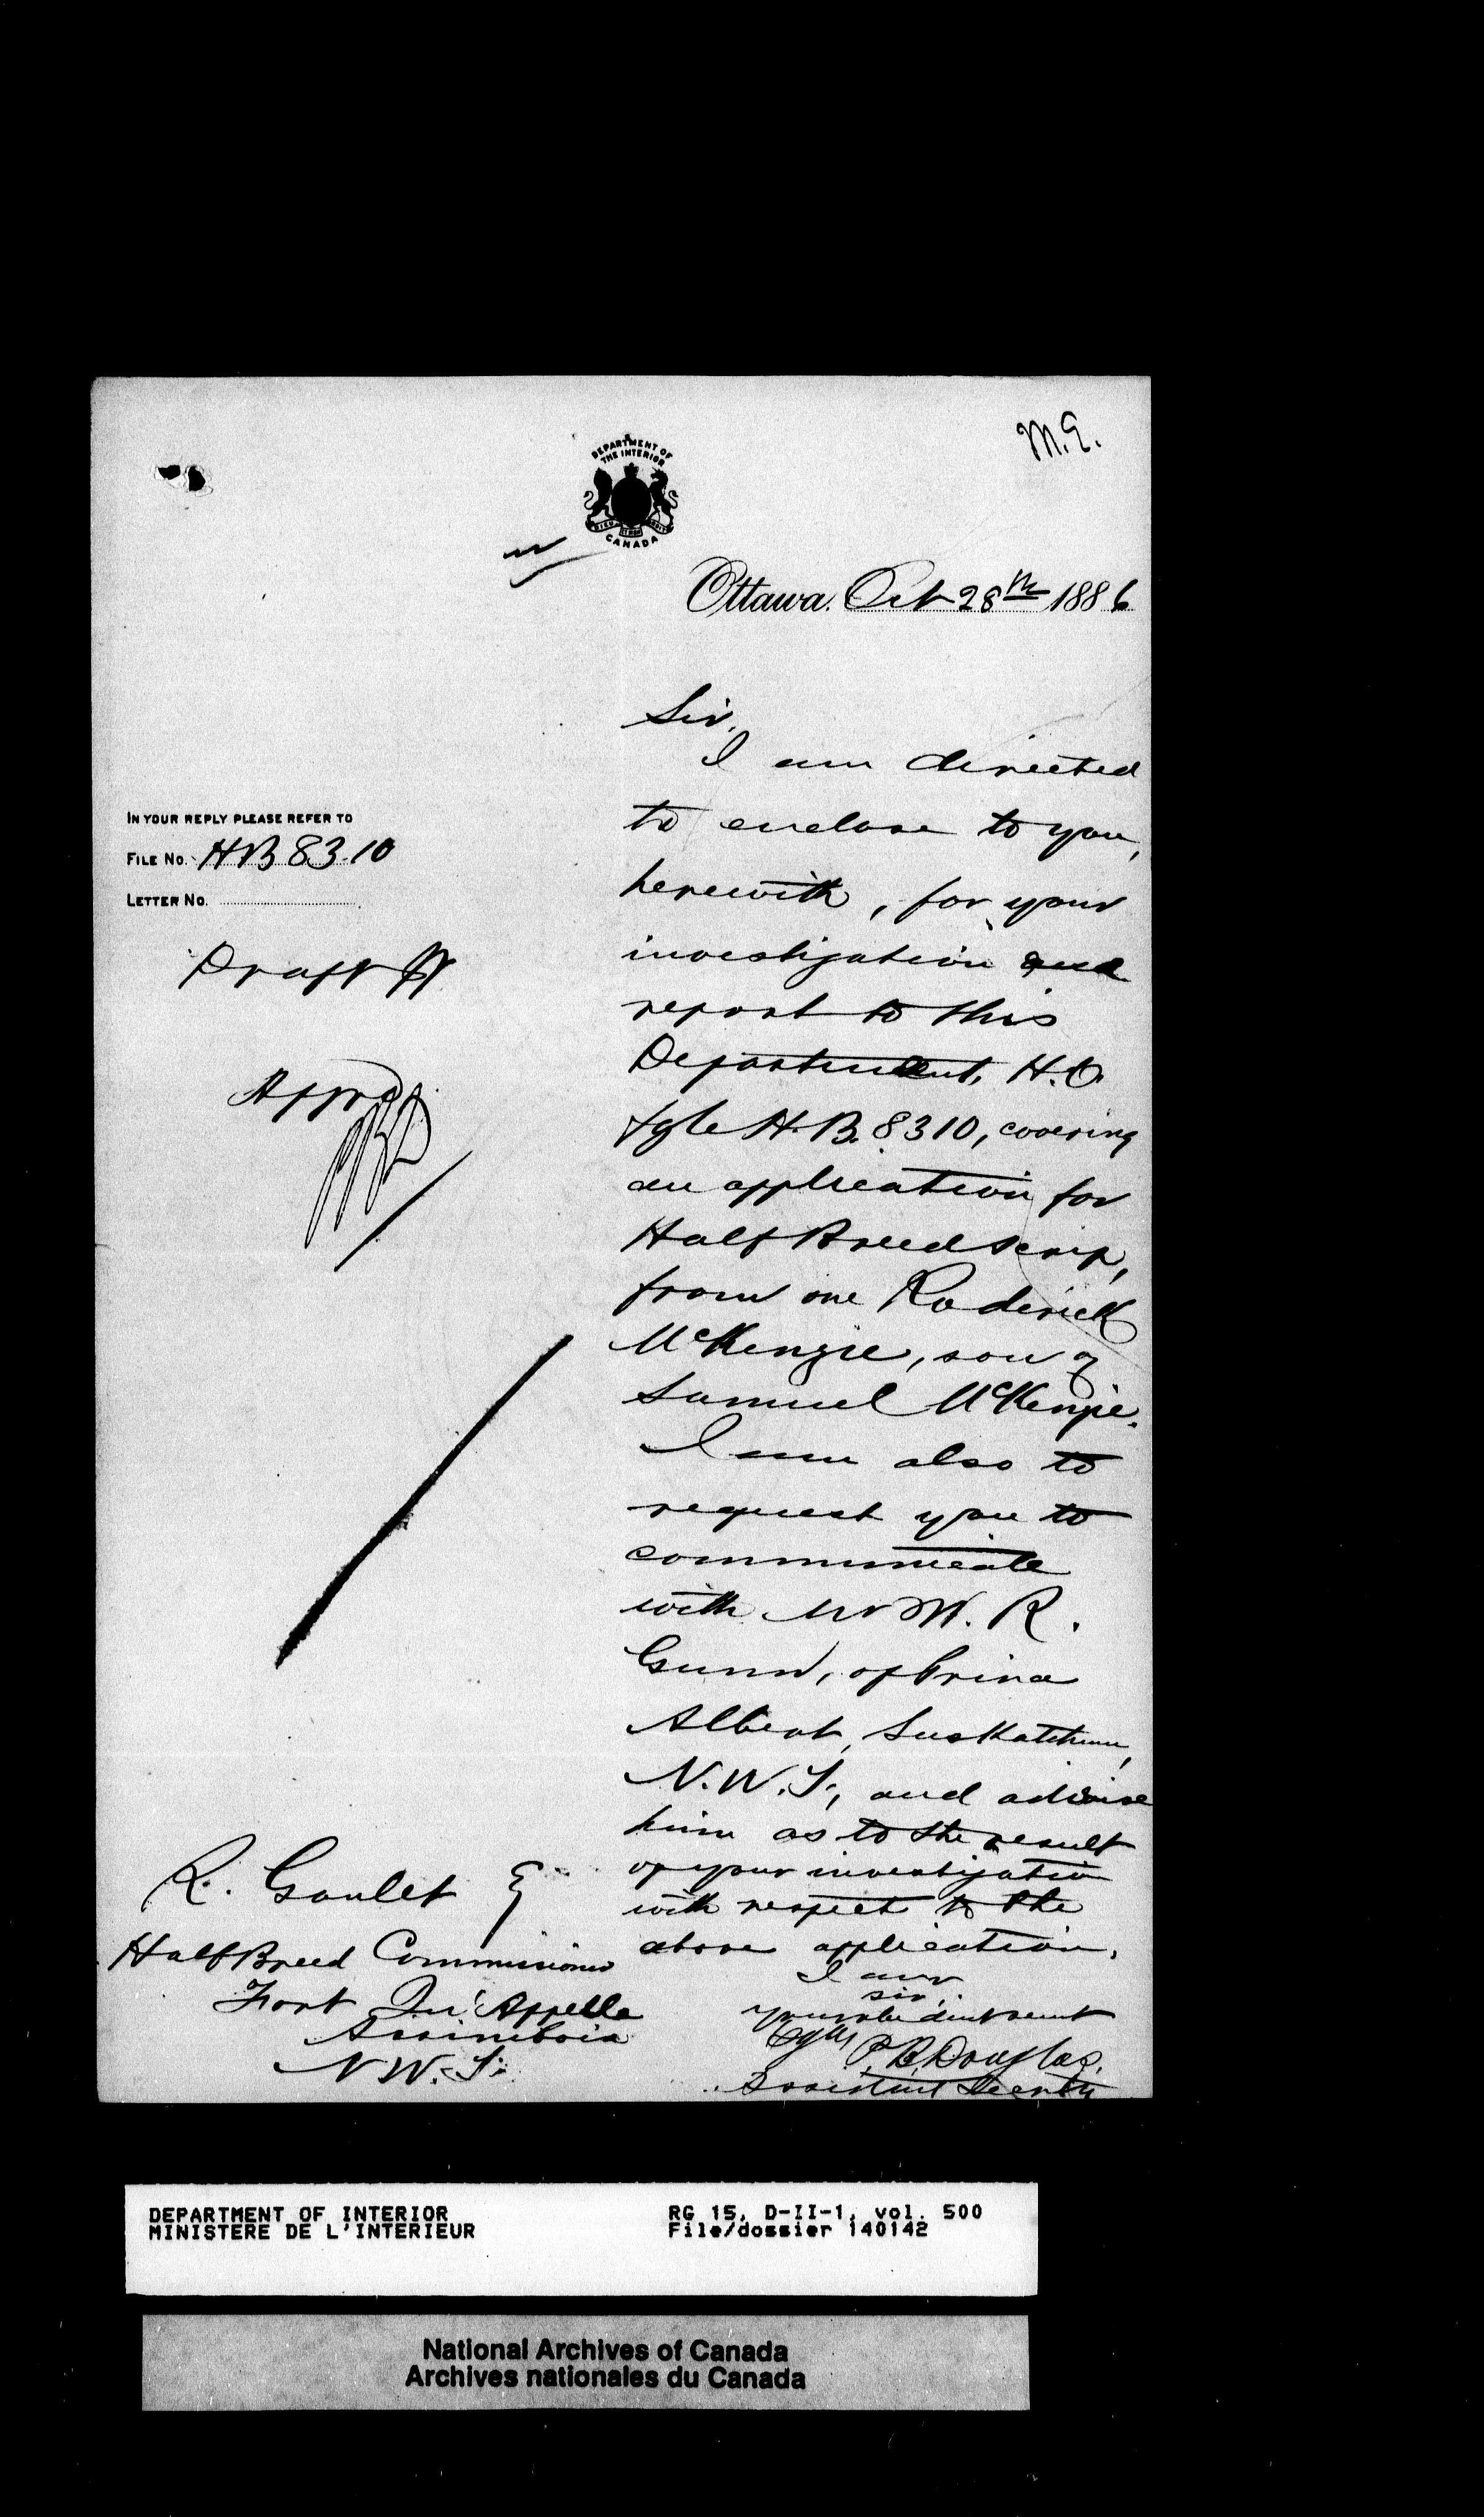 M.E.
DEPARTMENT OF
THE INTERIOR
CANADA
Ottawa. Oct 28th 1886
Sir,
I am directed
to enclose to you,
herewith, for your
investigation and
report to this
Department, H.O.
file H.B. 8310, covering
an application for
Half Breed Scrip,
from one Roderick
McKenzie, son of
Samuel McKenzie.
I am also to
request you to
communicate
with Mr W. R.
Gunn, of Prince
Albert, Saskatchewan,
N.W.T., and advise
him as to the result
of your investigation
with respect to the
above application.
I am
sir,
your obedient servant
P. B. Douglas.
Assistant Secrety
IN YOUR REPLY PLEASE REFER TO
FILE No. HB 8310
LETTER No.
Draft
Appro
R. Goulet
Half Breed Commissioner
Fort Qu'Appelle
Assiniboia
N.W.T.
DEPARTMENT OF INTERIOR
MINISTERE DE L'INTERIEUR
RG 15, D-II-1, vol. 500
File/dossier 140142
National Archives of Canada
Archives nationales du Canada